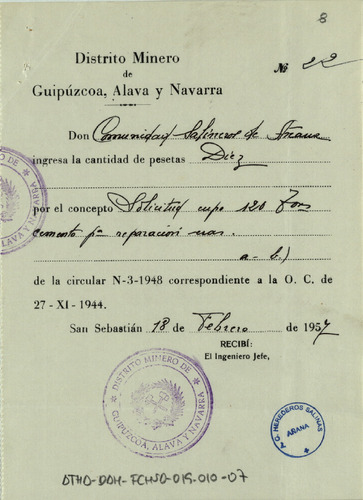 8
Distrito Minero
de
Guipúzcoa, Alava y Navarra
Nº 22
Don Comunidad Salineros de Añana
ingresa la cantidad de pesetas Diez
por el concepto Solicitud cupo 120 Tons
cemento pª reparación
a-b.)
de la circular N-3-1948 correspondiente a la O. C. de
27 - XI - 1944.
San Sebastián 18 de Febrero de 1957
RECIBÍ:
El Ingeniero Jefe,
DISTRITO MINERO DE
GUIPÚZCOA, ALAVA Y NAVARRA
G. HEREDEROS SALINAS
AÑANA
DTHO-DDH-FCHSD-019.010-07